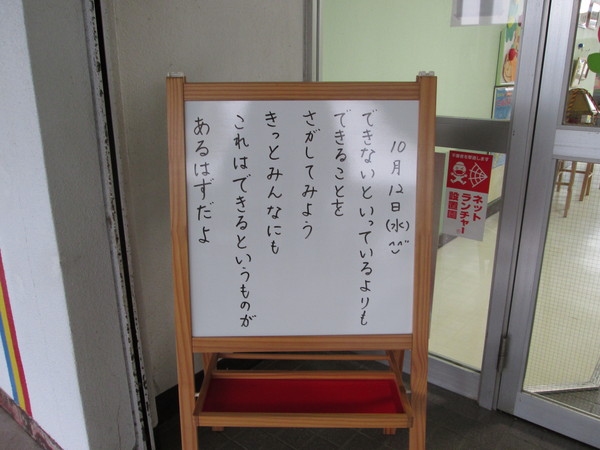 10月12日(水)^^
できないといっているよりも
できることを
さがしてみよう
きっとみんなにも
これはできるというものが
あるはずだよ
ネット
ランチャー
設置園